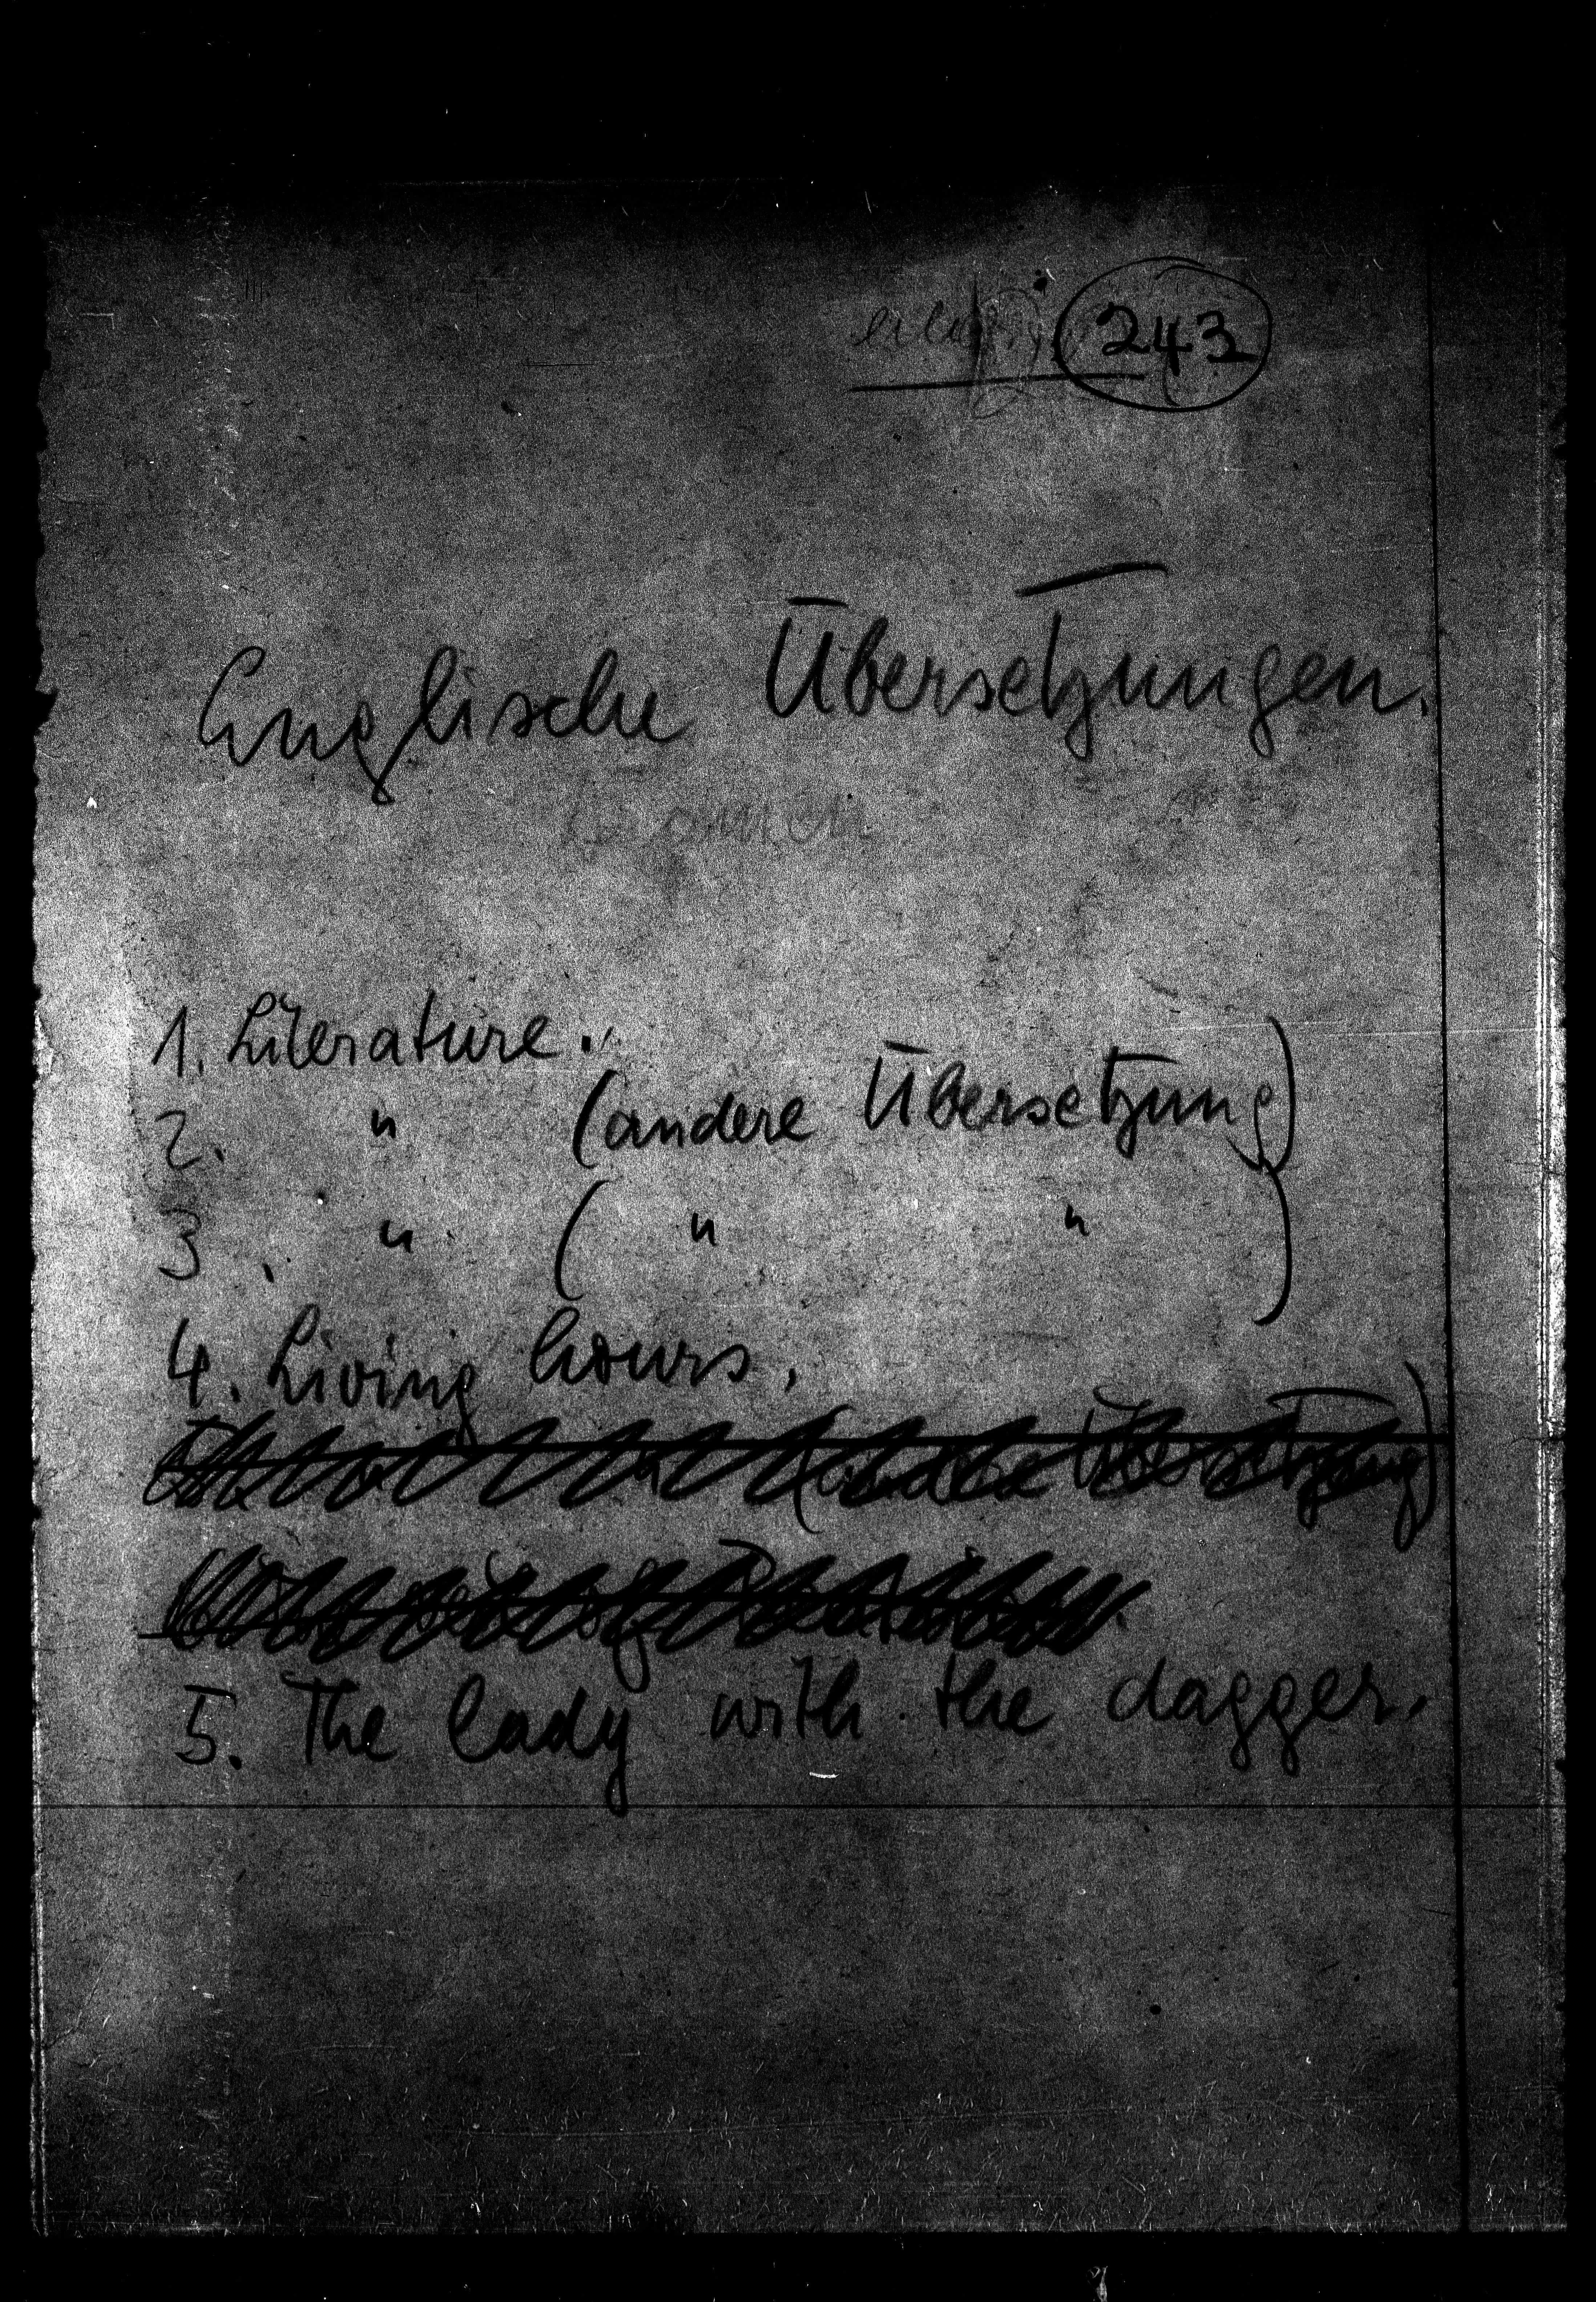 243
Englische Übersetzungen.
1. Literature.
2. " (andere Übersetzung)
3. " ( " " )
4. Living hours.
(andere Übersetzung)
5. The lady with the dagger.